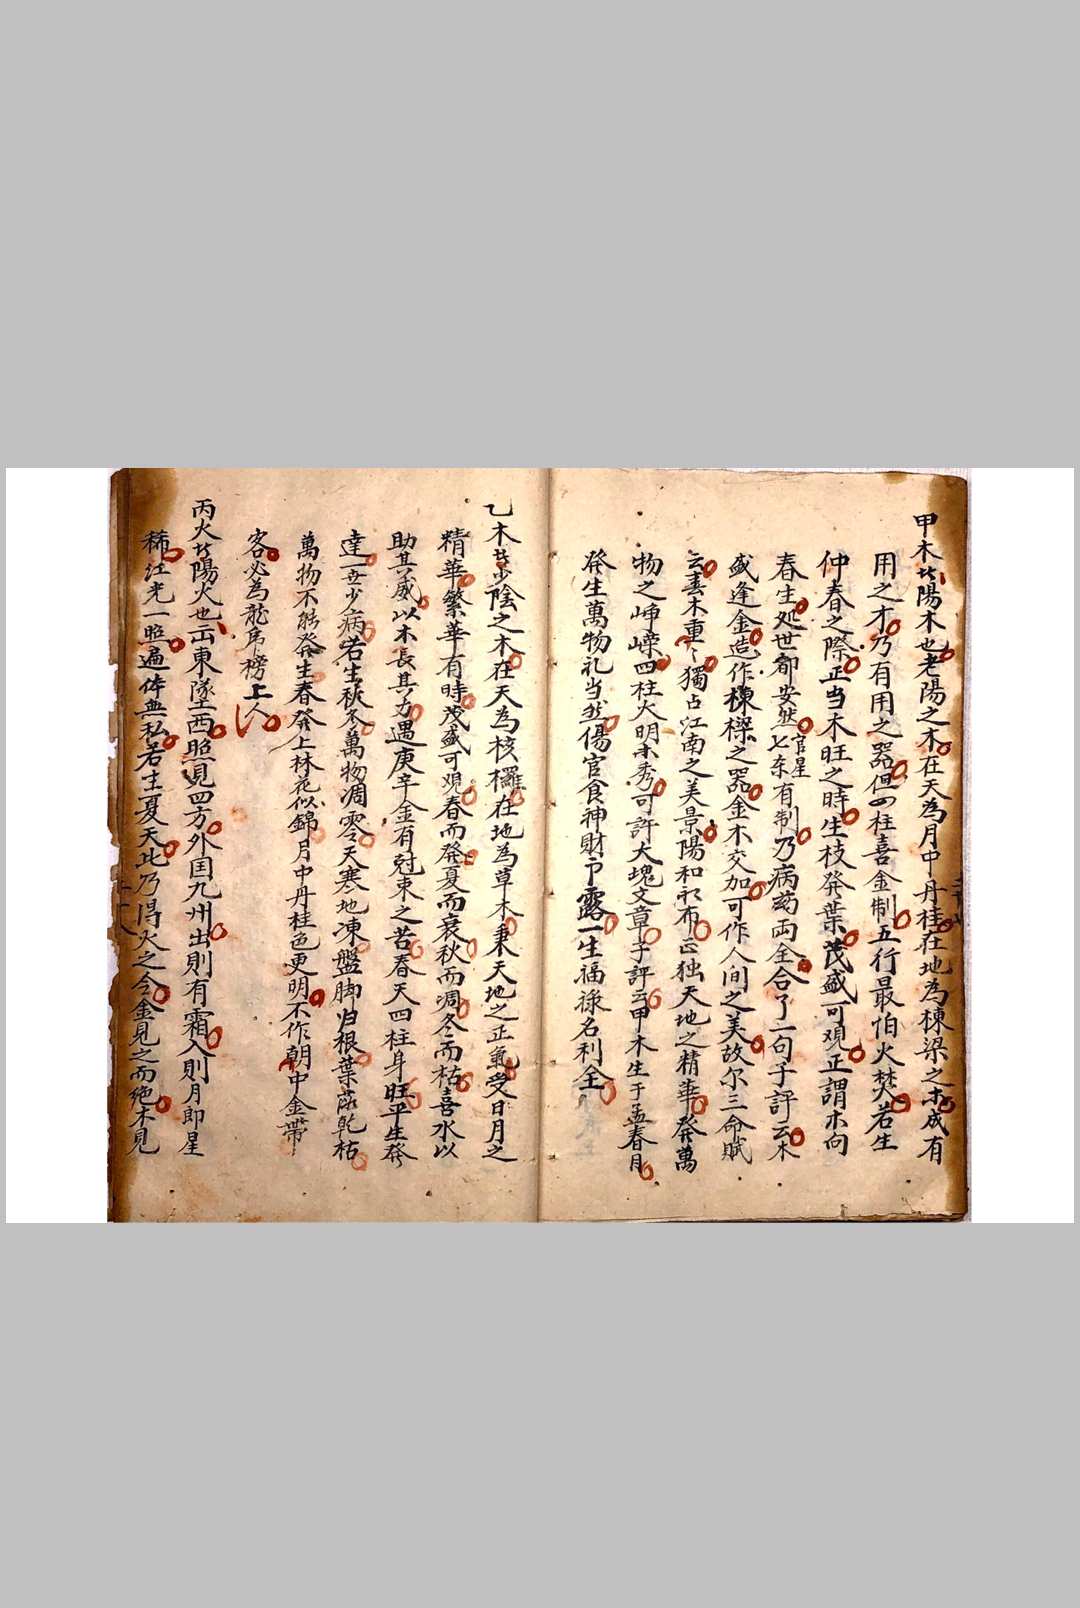 甲木廿陽木也老陽之木在天為月中丹桂在地為棟梁之木成有
用之才乃有用之器但四柱喜金制五行最怕火焚若生
仲春之際正当木旺之時生枝発葉茂盛可观正謂木向
春生処世卻安然官星七杀有制乃病药両全合了一句子評云木
盛逢金造作棟樑之器金木交加可作人间之美故尔三命賦
云春木重々獨占江南之美景陽和初布正独天地之精華発萬
物之峥嶸四柱火明木秀可許大塊文章子評云甲木生于孟春月
発生萬物礼当然傷官食神財卩露一生福禄名利全
乙木廿少陰之木在天為桫欏在地為草木秉天地之正氣受日月之
精華繁華有時茂盛可观春而発夏而衰秋而凋冬而枯喜水以
助其威以木長其力遇庚辛金有尅束之苦春天四柱身旺平生発
達一世少病若生秋冬萬物凋零天寒地凍盤脚归根葉落乾枯
萬物不能発生春発上林花似錦月中丹桂色更明不作朝中金帶
客必為龍虎榜上人
丙火廿陽火也出東墜西照見四方外国九州出則有霜入則月即星
稀红光一照遍体無私若生夏天此乃得火之令金見之而绝木見